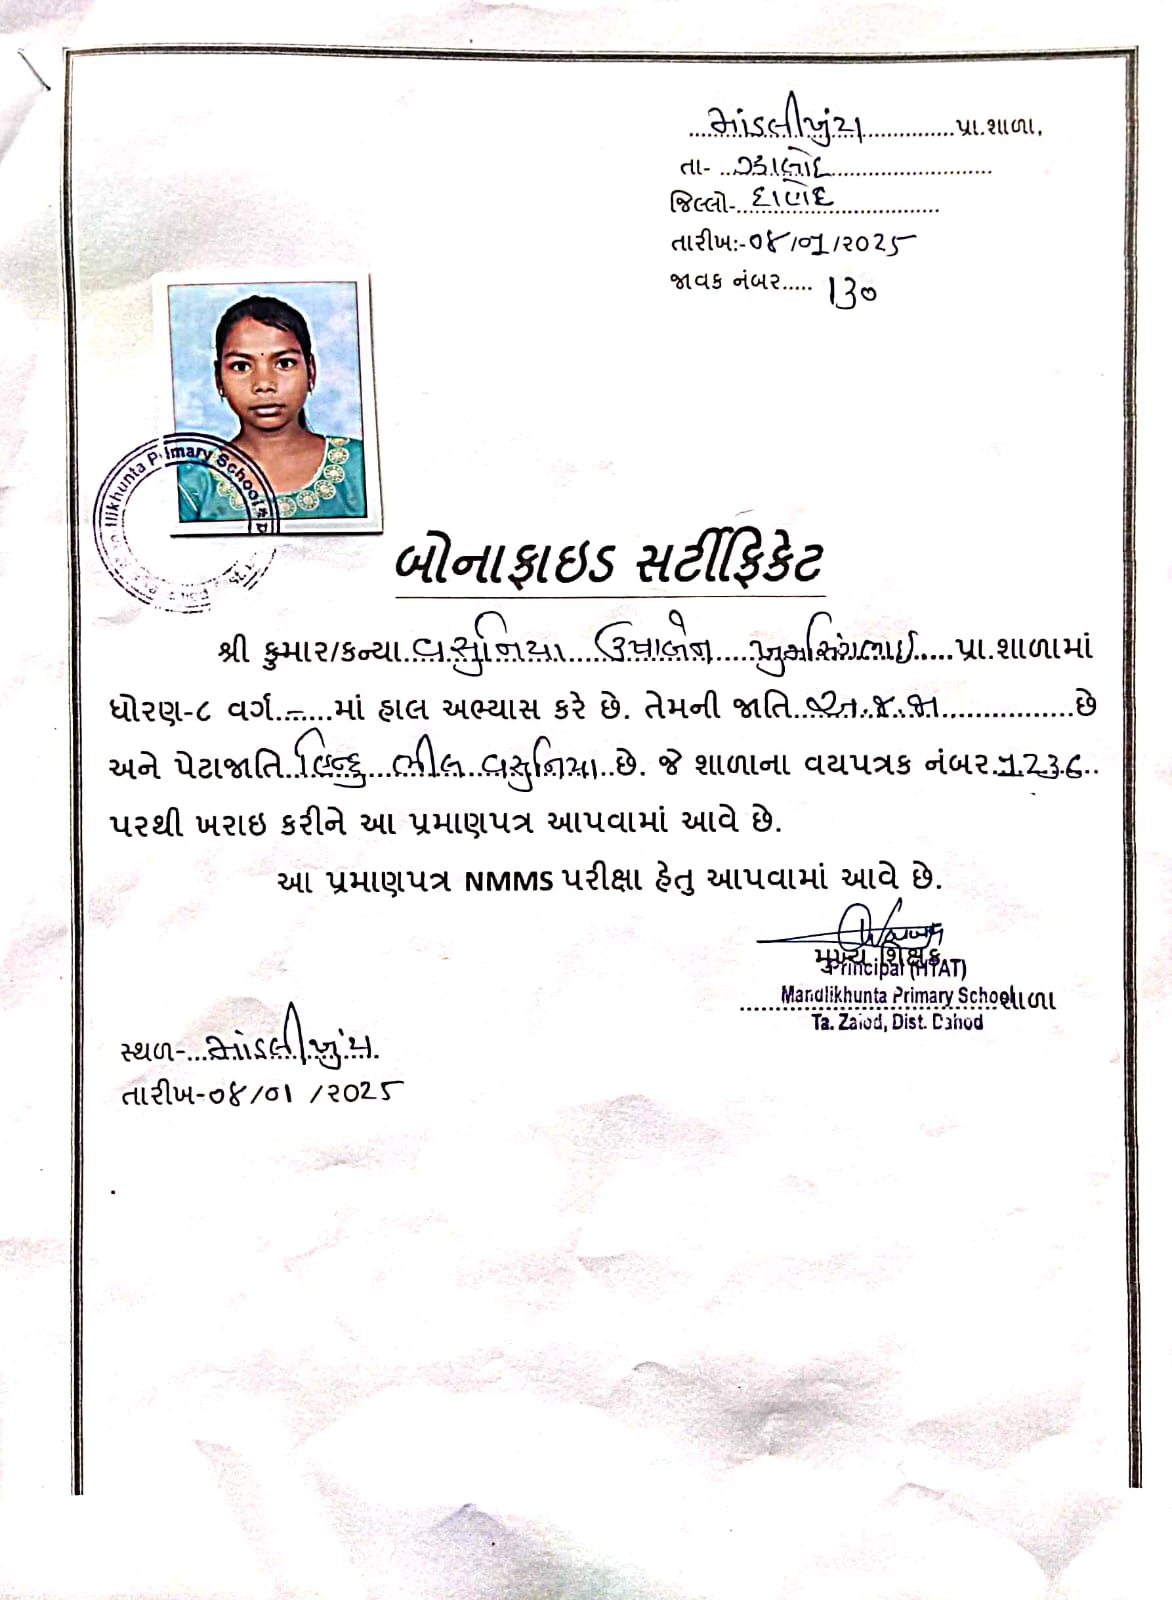 માંડલીખુંટા પ્રા.શાળા.
તા- ઝાલોદ
જિલ્લો- દાહોદ
તારીખ:-૦૪/૦1/૨૦૨૫
જાવક નંબર..... 130
likhunta Primary School
બોનાફાઇડ સર્ટીફિકેટ
શ્રી કુમાર/કન્યા વસુનિયા ઉષાબેન ખુમસિંગભાઈ પ્રા.શાળામાં
ધોરણ-૮ વર્ગ.-.....માં હાલ અભ્યાસ કરે છે. તેમની જાતિ અ.જ.જા છે
અને પેટાજાતિ હિન્દુ ભીલ વસુનિયા છે. જે શાળાના વયપત્રક નંબર
પરથી ખરાઇ કરીને આ પ્રમાણપત્ર આપવામાં આવે છે.
આ પ્રમાણપત્ર NMMS પરીક્ષા હેતુ આપવામાં આવે છે.
મુખ્ય શિક્ષક
Principal (HTAT)
Mandlikhunta Primary School શાળા
Ta. Zalod, Dist. Dahod
સ્થળ- માંડલીખુંટા
તારીખ-૦૪/૦૧ /૨૦૨૫